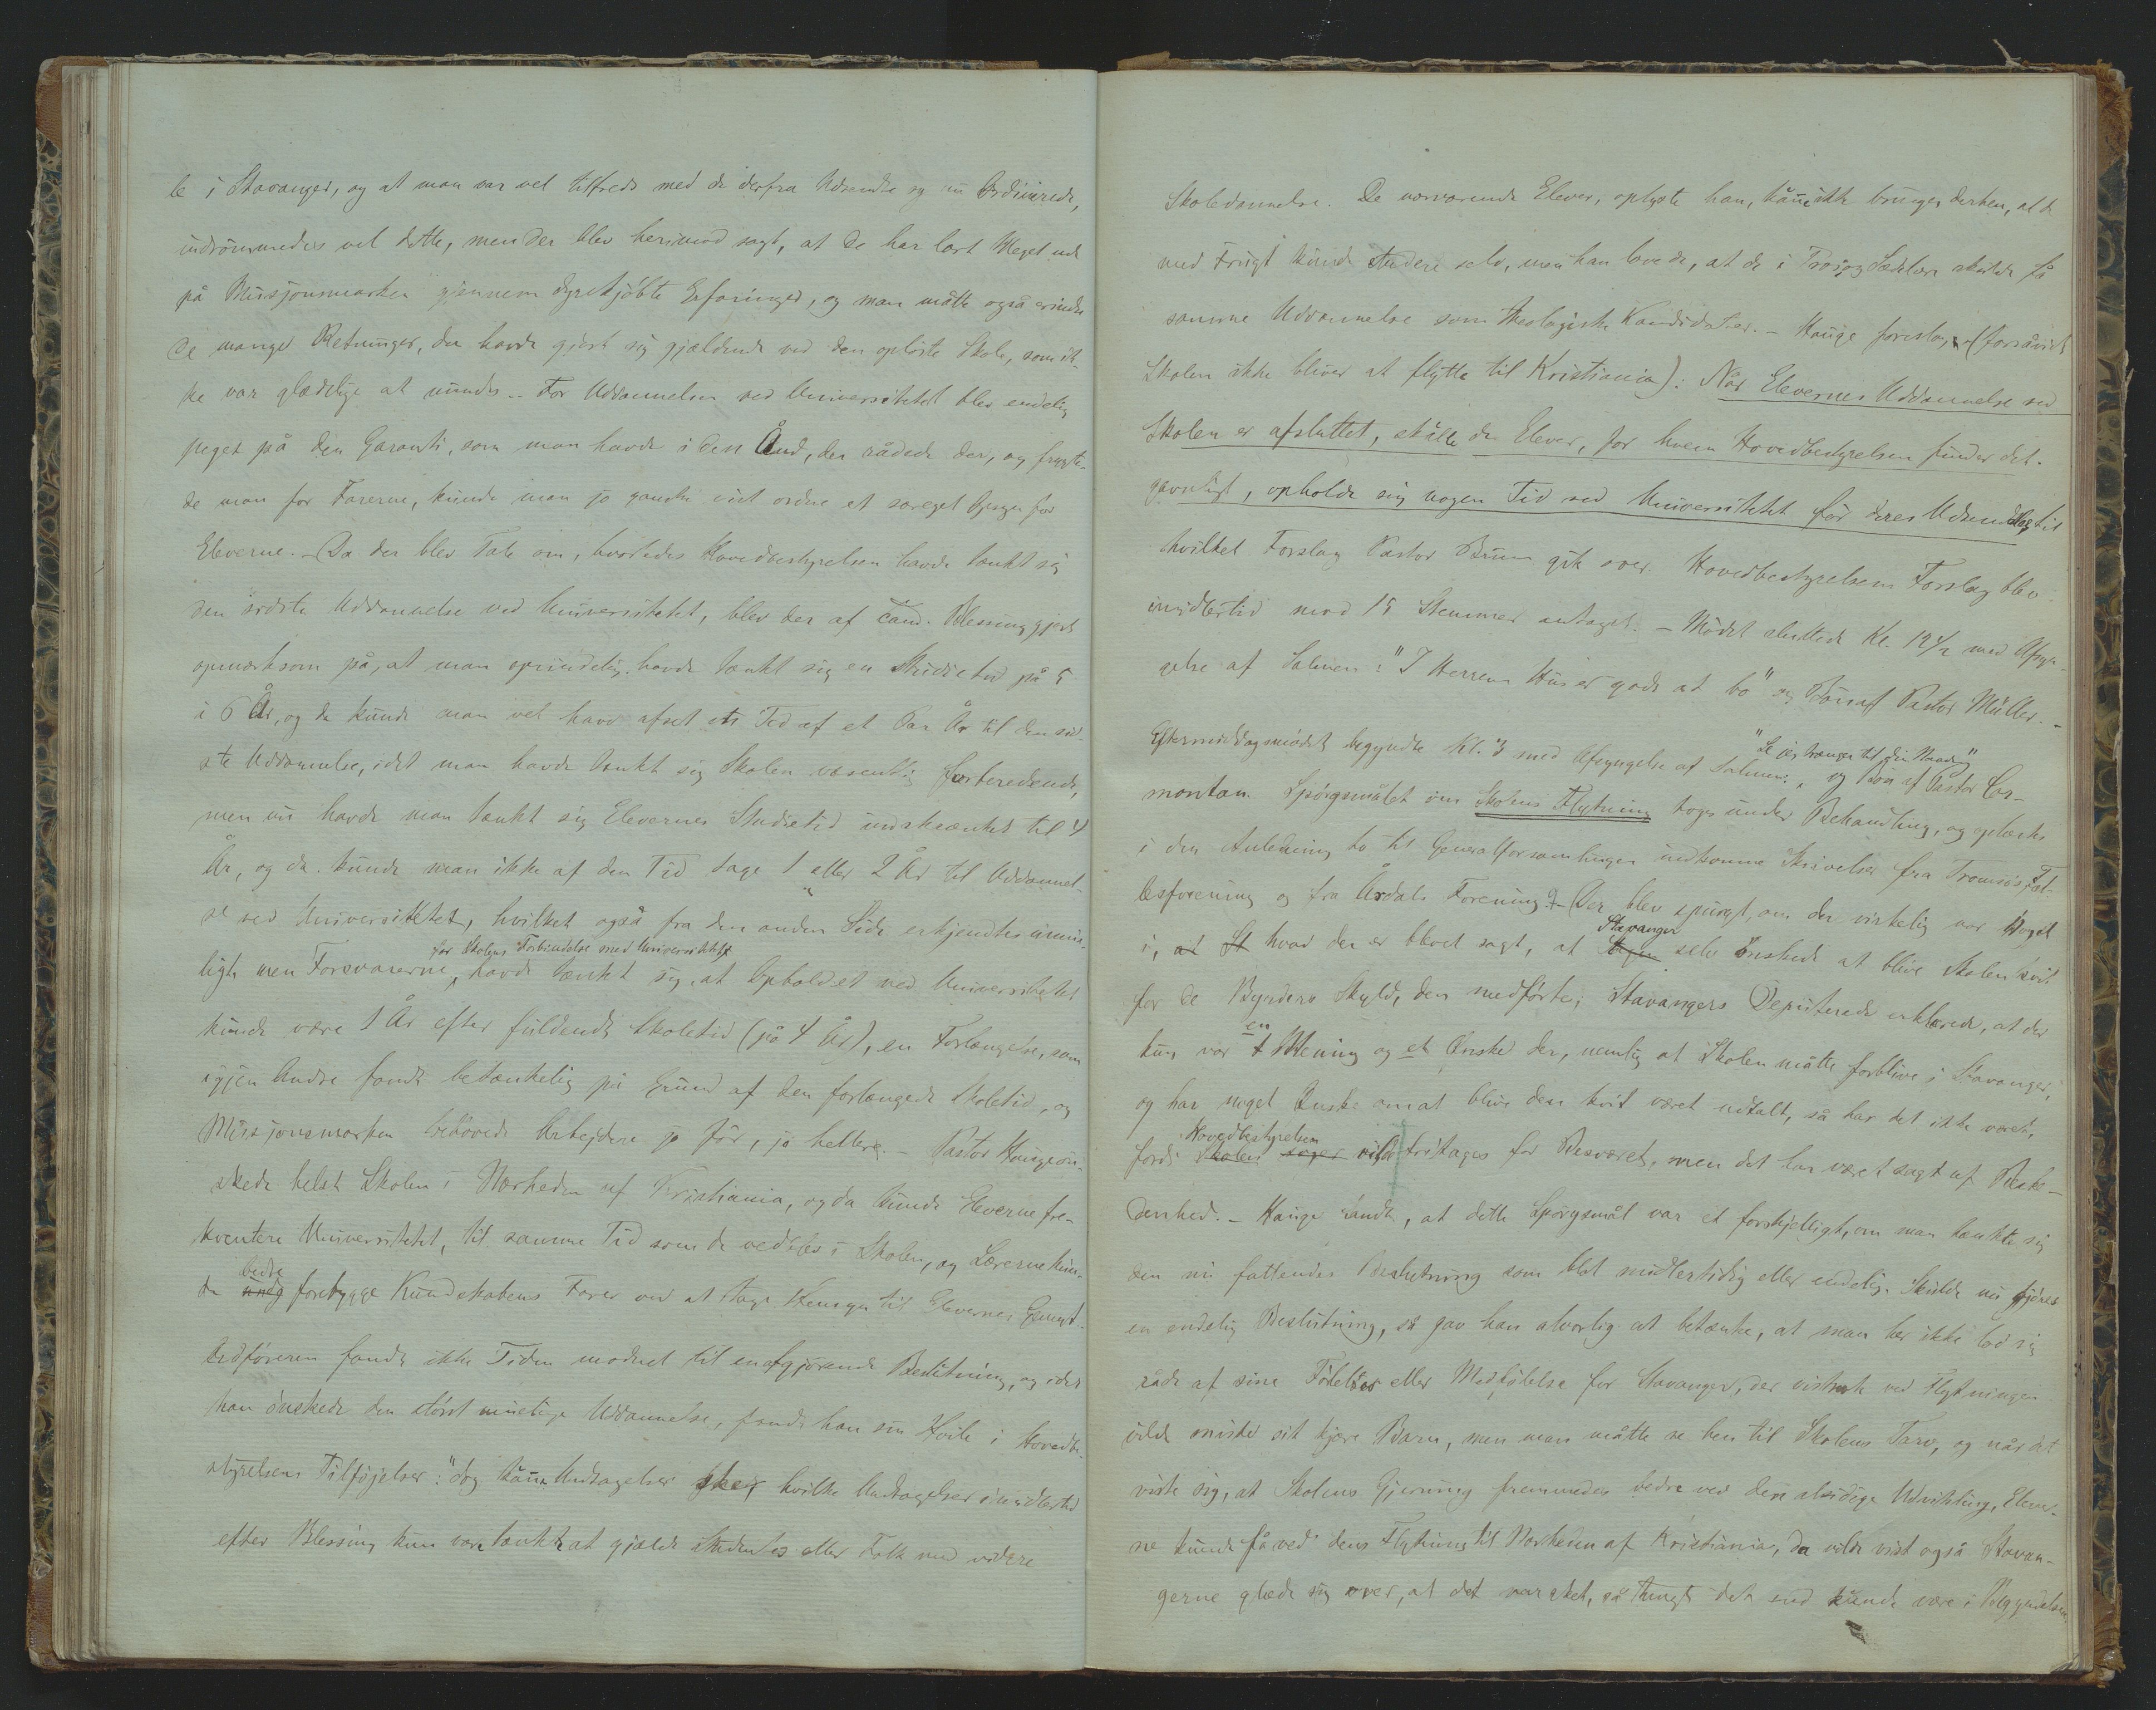 le i Stavanger, og at man var vel tilfreds med de derfra Udsendte og nu Ordinirede,
indrömmedes vel dette, men der blev herimod sagt, at de har lært Meget ude
på Missjonsmarken gjennem dyrekjöbte Erfaringer, og man måtte også erindre
de mange Retninger, der havde gjort sig gjældende ved den oplöste Skole, som ik-
ke var glædelige at mindes. - For Uddannelsen ved Universitetet blev endelig
peget på den Garanti, som man havde i den Ånd, der rådede der, og frygte-
de man for Farerne, kunde man jo ganske vist ordne et særeget Opsyn for
Eleverne. - Da der blev Tale om, hvorledes Hovedbestyrelsen havde tænkt sig
den sidste Uddannelse ved Universitetet, blev der af cand. Blessing gjort
opmærksom på, at man oprindelig havde tænkt sig en Studietid på 5
à 6 År, og da kunde man vel have afset en Tid af et Par År til den sid-
ste Uddannelse, idet man havde tænkt sig Skolen væsentlig forberedende,
men nu havde man tænkt sig Elevernes Studietid indskrænket til 4
År, og da kunde man ikke af den Tid tage 1 eller 2 År til Uddannel-
se ved Universitetet, hvilket også fra den anden Side erkjendtes umu-
for Skolens Forbindelse med Universitetet
ligt, men Forsvarerne havde tænkt sig, at Opholdet ved Universitetet
kunde være 1 År efter fuldendt Skoletid (på 4 År), en Forlængelse, som
igjen Andre fandt betænkelig på Grund af den forlængede Skoletid, og
Missjonsmarken behövede Arbejdere jo för, jo hellere. - Pastor Hauge ön-
skede helst Skolen i Nærheden af Kristiania, og da kunde Eleverne fre-
kventere Universitetet, til samme Tid som de vedblev i Skolen, og Lærerne kun-
bedre
de forebygge Kundskabens Farer ved at tage Hensyn til Elevernes Gemyt.
Ordföreren fandt ikke Tiden modnet til en afgjörende Beslutning, og idet
han önskede den störst muelige Uddannelse, fandt han sin Hvile i Hovedbe-
styrelsens Tilföjelser: "dog kan Undtagelser ske", hvilke Undtagelser imidlertid
efter Blessing kun vare tænkt at gjælde Studenter eller Folk med videre
Skoledannelse. De nærværende Elever, oplyste han, kan ikke bringes derhen, at de
med Frugt kunde studere selv, men han lovede, at de i Tros og Sædelære skulde få
samme Uddannelse som theologiske Kandidater. - Hauge foreslog, (forsåvidt
Skolen ikke bliver at flytte til Kristiania): Når Elevernes Uddannelse ved
Skolen er afsluttet, skulle de Elever, for hvem Hovedbestyrelsen finder det
gavnligt, opholde sig nogen Tid ved Universitetet för deres Udsendelse, til
hvilket Forslag Pastor Bruun gik over. Hovedbestyrelsens Forslag blev
imidlertid mod 15 Stemmer antaget. - Mödet sluttede Kl. 12½ med Afsyn-
gelse af Salmen: "I Herrens Hus er godt at bo" og Bön af Pastor Müller. -
"Se os trænger til din Naade"
Eftermiddagsmödet begyndte Kl. 3 med Afsyngelse af Salmen:, og Bön af Pastor Cor-
montan. Spörgsmålet om Skolens Flytning toges under Behandling, og oplæstes
i den Anledning to til Generalforsamlingen indkomne Skrivelser fra Tromsös Fæl-
lesforening og fra Årdals Forening. - Der blev spurgt, om der virkelig var Noget
Stavanger
i, at St hvad der er blevet sagt, at selv önskede at blive Skolen kvit
for de Byrders Skyld, den medförte; Stavangers Deputerede erklærede, at der
en
kun var 1 Mening og et Önske der, nemlig at Skolen måtte forblive i Stavanger,
og har noget Önske om at blive den kvit været udtalt, så har det ikke været,
Hovedbestyrelsen
fordi Skolens vilde fritages for Besværet, men det har været sagt af Beske-
denhed. - Hauge fandt, at dette Spörgsmål var et forskjelligt, om man tænkte sig
den nu fattendes Beslutning som blot midlertidig eller endelig. Skulde nu gjöres
en endelig Beslutning, så gav han alvorlig at betænke, at man her ikke lod sig
råde af sine Fölelser eller Medfölelse for Stavanger, der vistnok ved Flytningen
vilde miste sit kjære Barn, men man måtte se hen til Skolens Tarv, og når det
viste sig, at Skolens Gjerning fremmedes bedre ved den alsidige Udvikling, Elever-
ne kunde få ved dens Flytning til Nærheden af Kristiania, da vilde vist også Stavan-
gerne glæde sig over, at det var sket, så tungt det end kunde være i Begyndelsen.